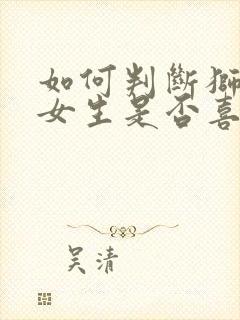 如何判斷獅
女生是否喜
吴清